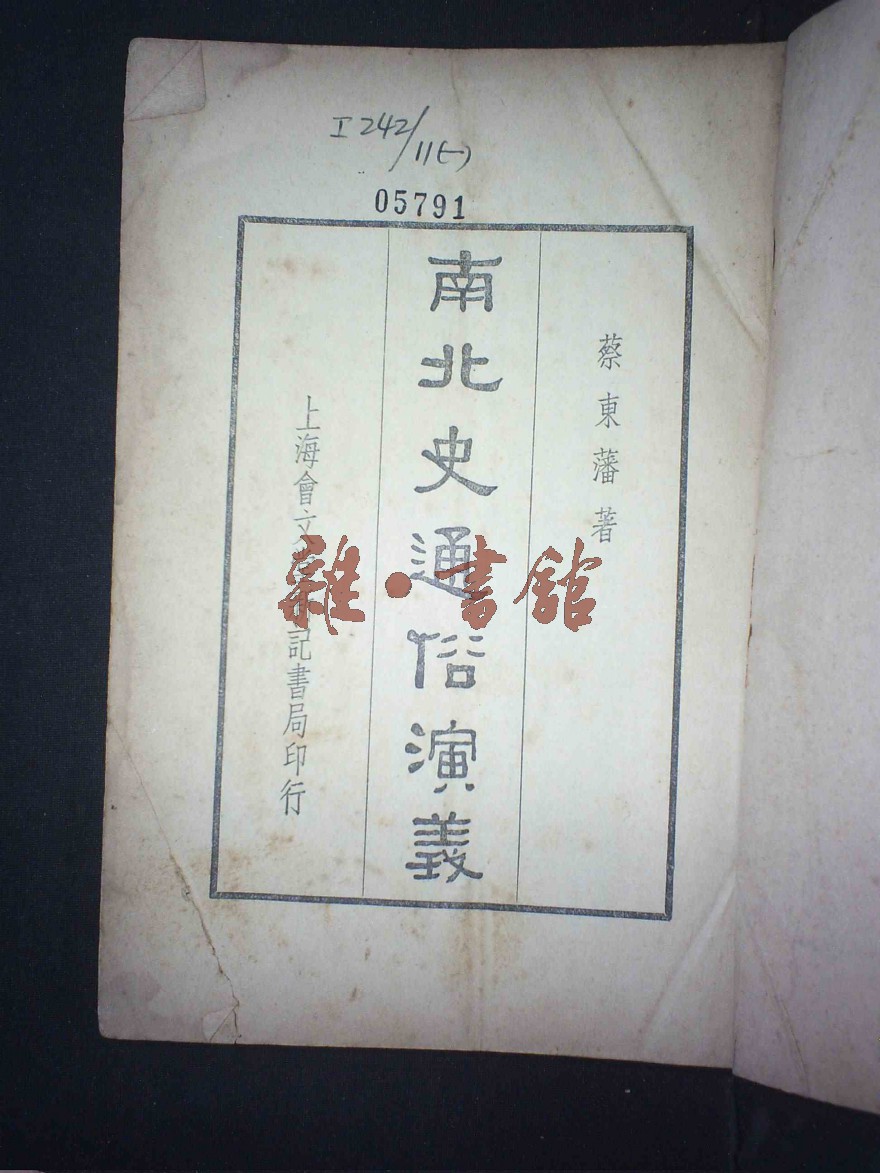 I242/11(一)
05791
蔡東藩著
南北史通俗演義
上海會文 記書局印行
雜·書館